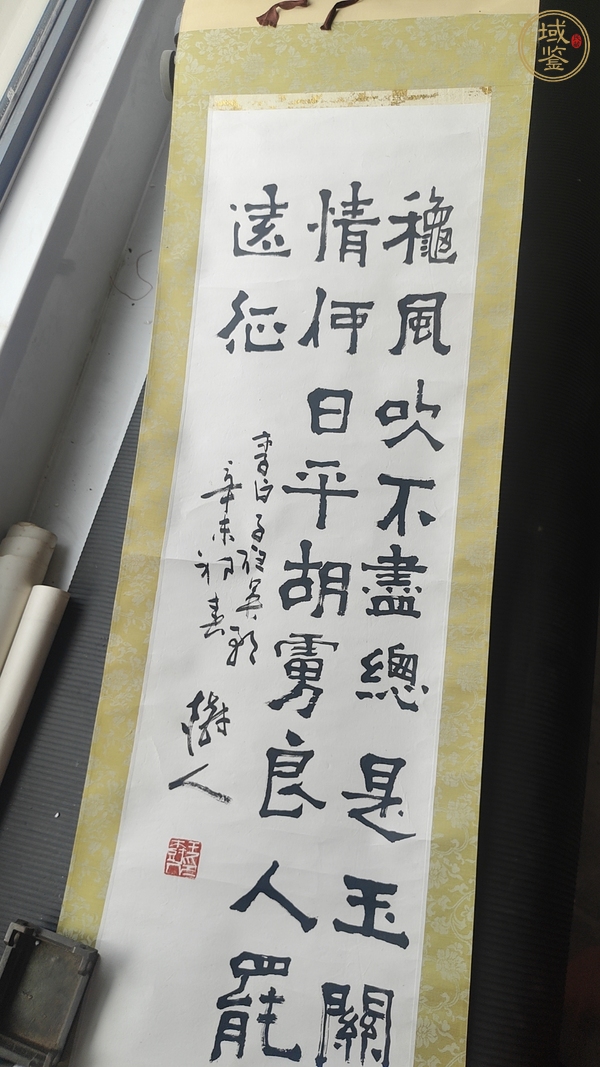 穐風吹不盡總是玉關
情何日平胡虜良人罷
遠征
書白子夜吴歌
辛未初春
樹人
域鉴